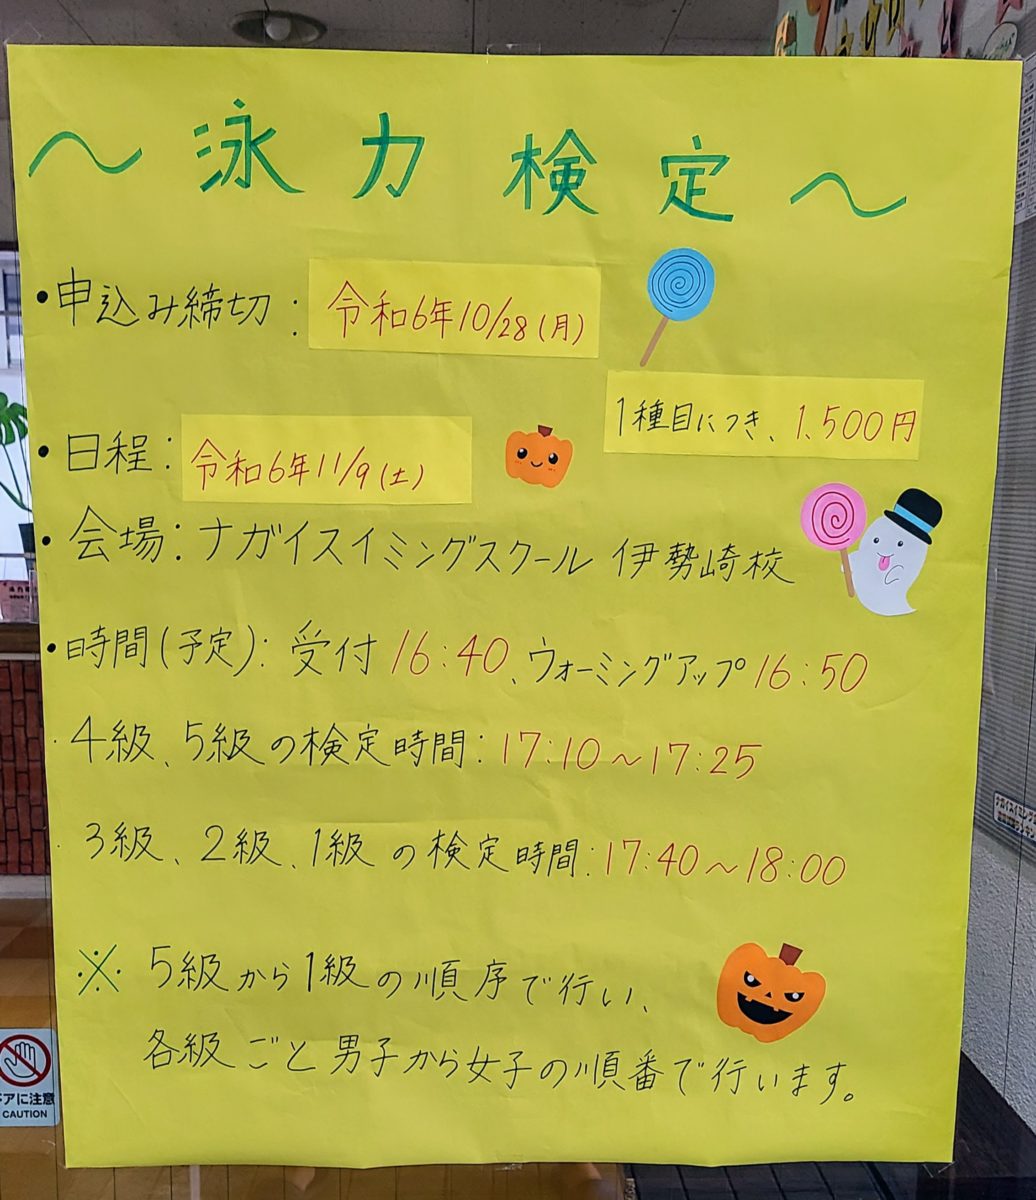 ～泳力検定～
・申込み締切：令和6年10/28(月)
1種目につき、1.500円
・日程：令和6年11/9(土)
・会場：ナガイスイミングスクール 伊勢崎校
・時間(予定)：受付 16:40、ウォーミングアップ 16:50
4級、5級の検定時間：17:10～17:25
3級、2級、1級の検定時間：17:40～18:00
※ 5級から1級の順序で行い、
各級ごと男子から女子の順番で行います。
ドアに注意
CAUTION